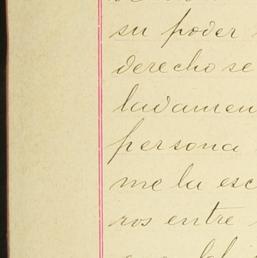 su poder
derecho se
ladamen
persona
me la esc
ros entre